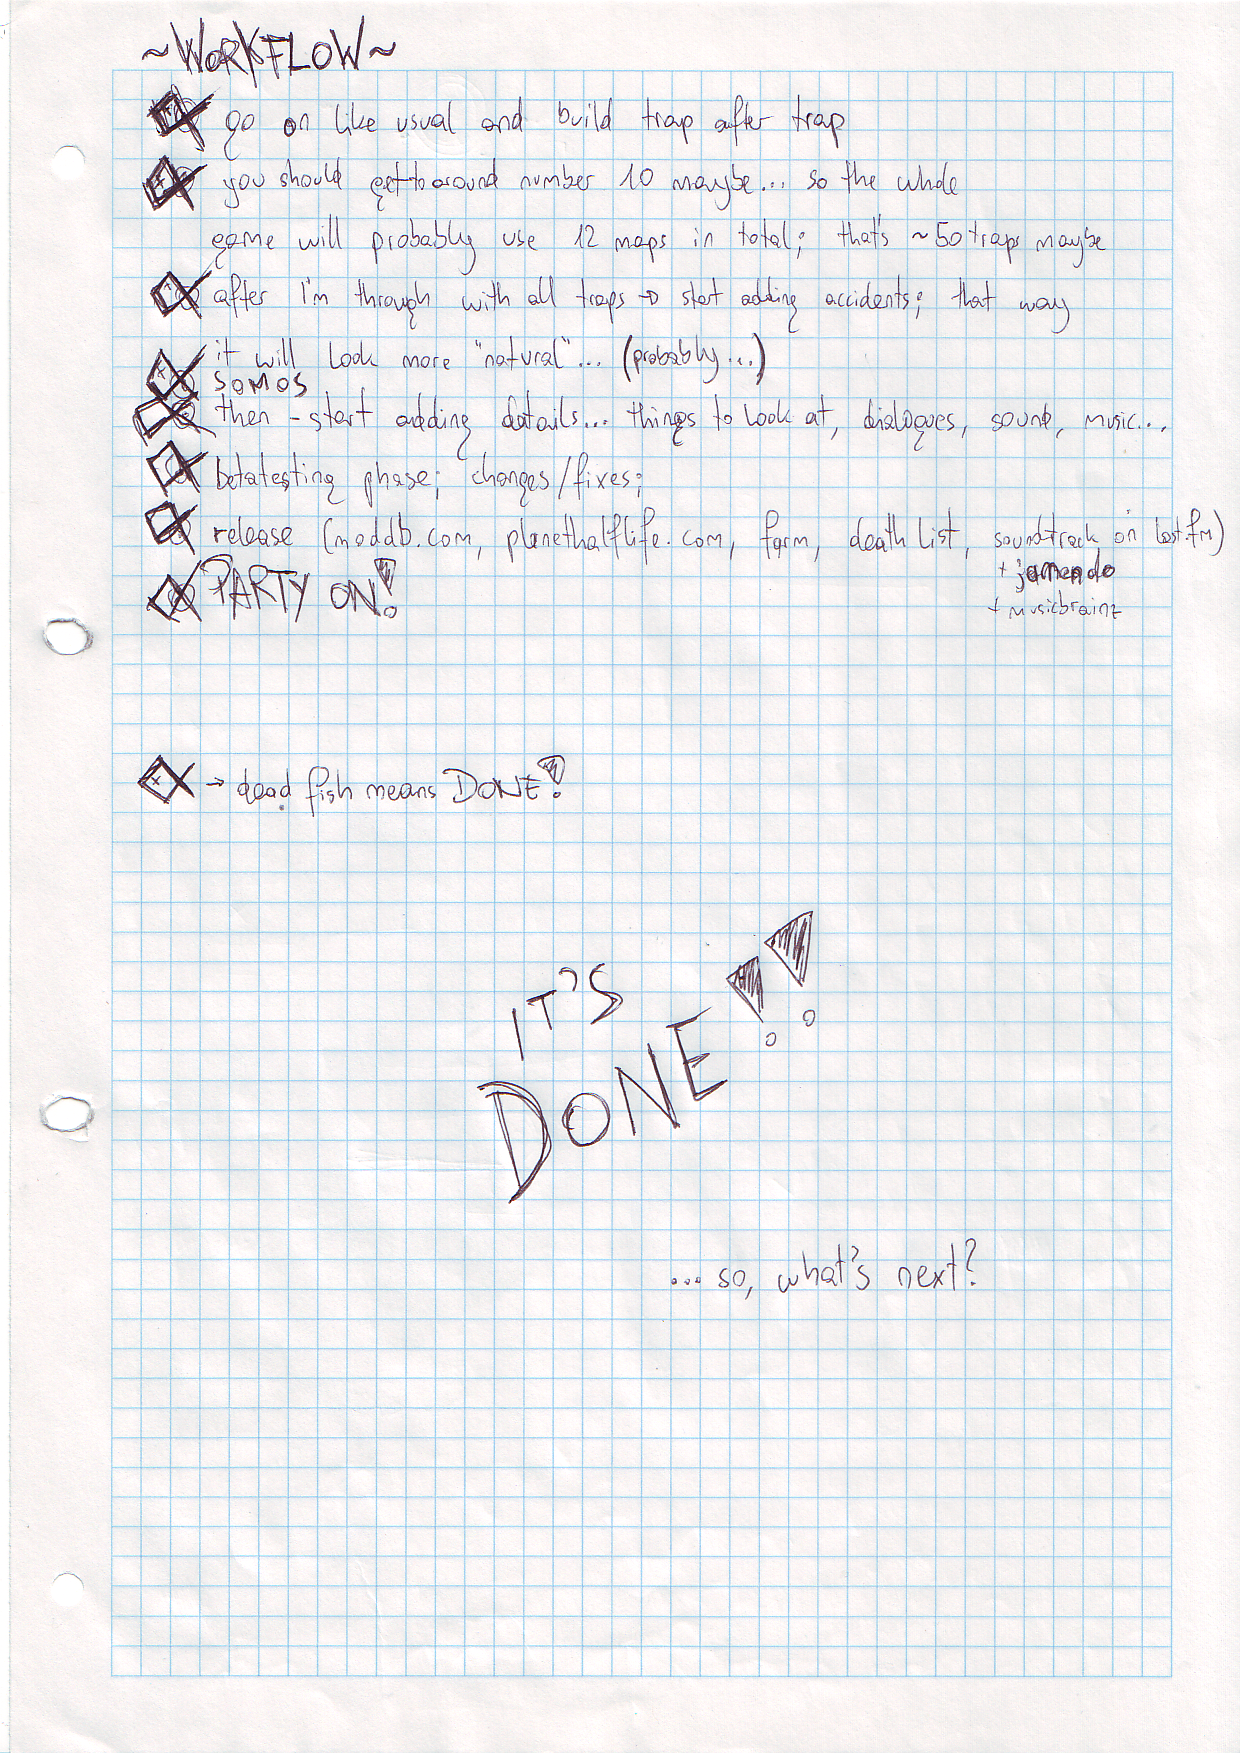 ~WORKFLOW~
go on like usual and build trap after trap
you should get to around number 10 maybe... so the whole
game will probably use 12 maps in total; that's ~50 traps maybe
after I'm through with all traps → start adding accidents; that way
it will look more "natural"... (probably...)
SOMOS
then - start adding details... things to look at, dialogues, sound, music...
betatesting phase; changes/fixes;
release (moddb.com, planethalflife.com, farm, death list, soundtrack on last.fm)
+ jamendo
+ musicbrainz
PARTY ON!
→ dead fish means DONE!
IT'S
DONE!!
... so, what's next?